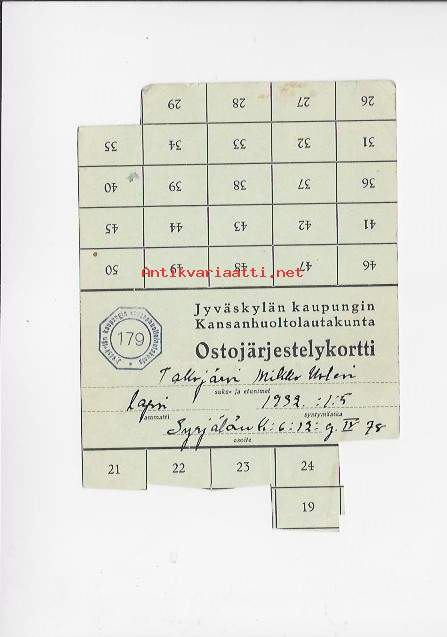 29 28 27 26
35 34 33 32 31
40 39 38 37 36
45 44 43 42 41
50 49 48 47 46
Antikvariaatti.net
Jyväskylän kaupungin
Kansanhuoltolautakunta
Ostojärjestelykortti
Jyväskylän kaupungin kansanhuoltolautakunta
179
Mikko
suku- ja etunimet
Lapsi 1932. :1:5
ammatti syntymäaika
:6:12: g. IV 78
osoite
21 22 23 24
19